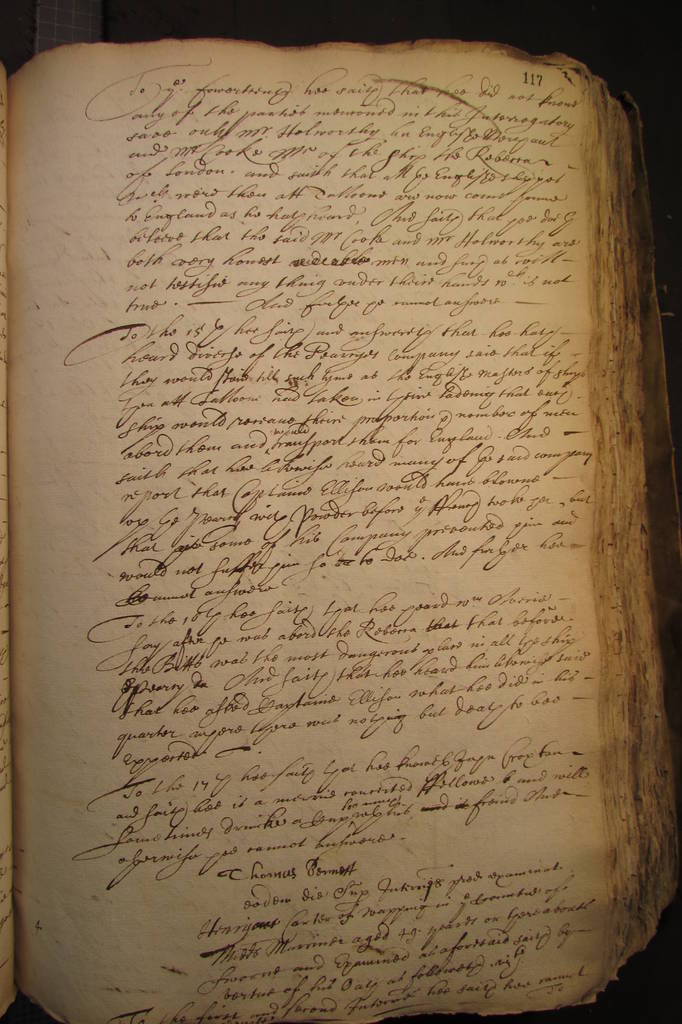 117
To ye fowerteenth hee saith that hee did not know
any of the parties menconed in this Interrogatory
save only Mr Holworthy an English Merchant
and Mr Cooke Mr of the Ship the Rebecca
of London. and saith that all ye English ships yt
were then att are now come home
to England as he hath heard, And saith that hee doth
beleeve that the said Mr Cooke and Mr Holworthy are
both very honest men and such as will
not testifie any thing under theire hands wch is not
true. And further he cannot answere
To the 15th hee saith and answereth that hee hath
heard diverse of the Pearles Company saie that if
they would staie till such tyme as the English Masters of ships
then att had taken in theire Ladeing that every
ship would receave theire proportion number of men
abord them and would transport them for England. And
saith that hee likewise heard many of ye said company
report that Captaine Ellison would have blowne
up the with Powder before ye tooke her, but
that some of his Company prevented him and
would not suffer him so to doe. And further hee
cannot answere
To the 16th hee saith that hee heard Wm
say after he was abord the Rebecca that before
the Bitts was the most dangerous place in all the ship
And saith that hee heard him likewise saie
that hee asked Captaine Ellison what hee did in his
quarter where there was nothing but death to bee
expected
To the 17th hee saith that hee knoweth John Croxton
and saith hee is a merrie conceited fellowe and will
sometimes drinke a Cupp with his freind And
otherwise hee cannot answere.
Thomas Bennett
eodem die Sup Interrijs pred examinat.
Carter of Wapping in ye Countie of
Midd Marriner aged 49 yeares or thereabouts
sworne and Examined as aforesaid saith by
vertue of his Oath as followeth vizt
To the first and second Interrie hee saith hee cannot
To